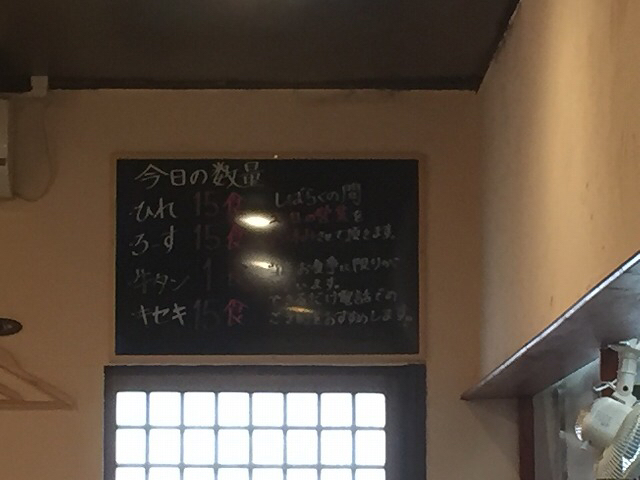 今日の数量
ひれ 15食
ろーす 15食
牛タン 1
キセキ 15食
しばらくの間
の営業を
させて頂きます。
お食事に限りが
います。
できるだけ電話での
をおすすめします。